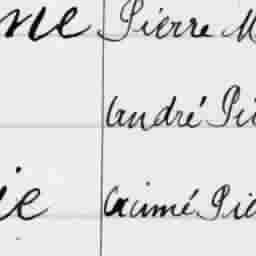 ne Pierre M
André Pi
ie Aimé Pie